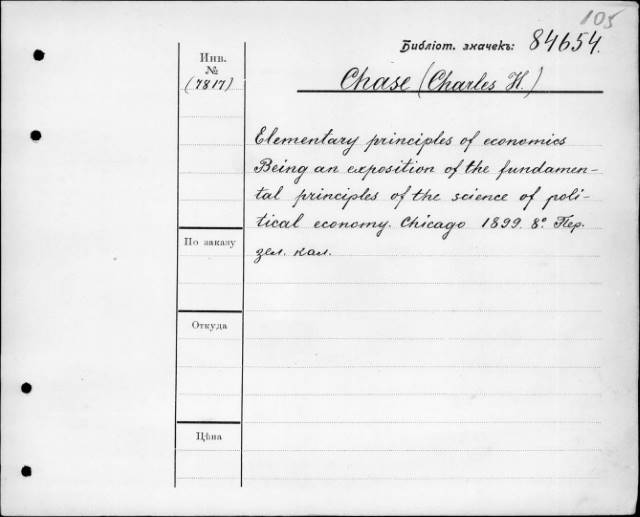 105
Библіот. значекъ: 84654.
Инв.
№
(7817)
Chase (Charles H.)
Elementary principles of economics
Being an exposition of the fundamen-
tal principles of the science of poli-
tical economy. Chicago 1899. 8°. Пер.
зел. кал.
По заказу
Откуда
Цѣна